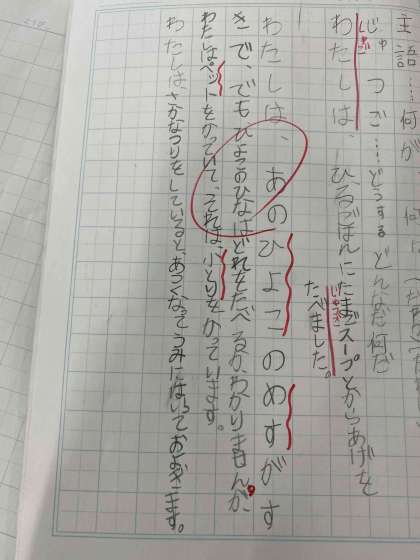 主語…何が、何は
じゅつご…どうする どんなだ 何だ
じゅご
わたしは、ひるごはんにたまごスープとからあげを
たべました。
じゅつご
わたしは、あのひよこのめすがす
きで、でもひよこのひなはどれをたべるかわかりませんが。
わたしはペットをかっていて、それは、小とりをかっています。
わたしは、さかなつりをしていると、あつくなってうみにはいっておよぎます。